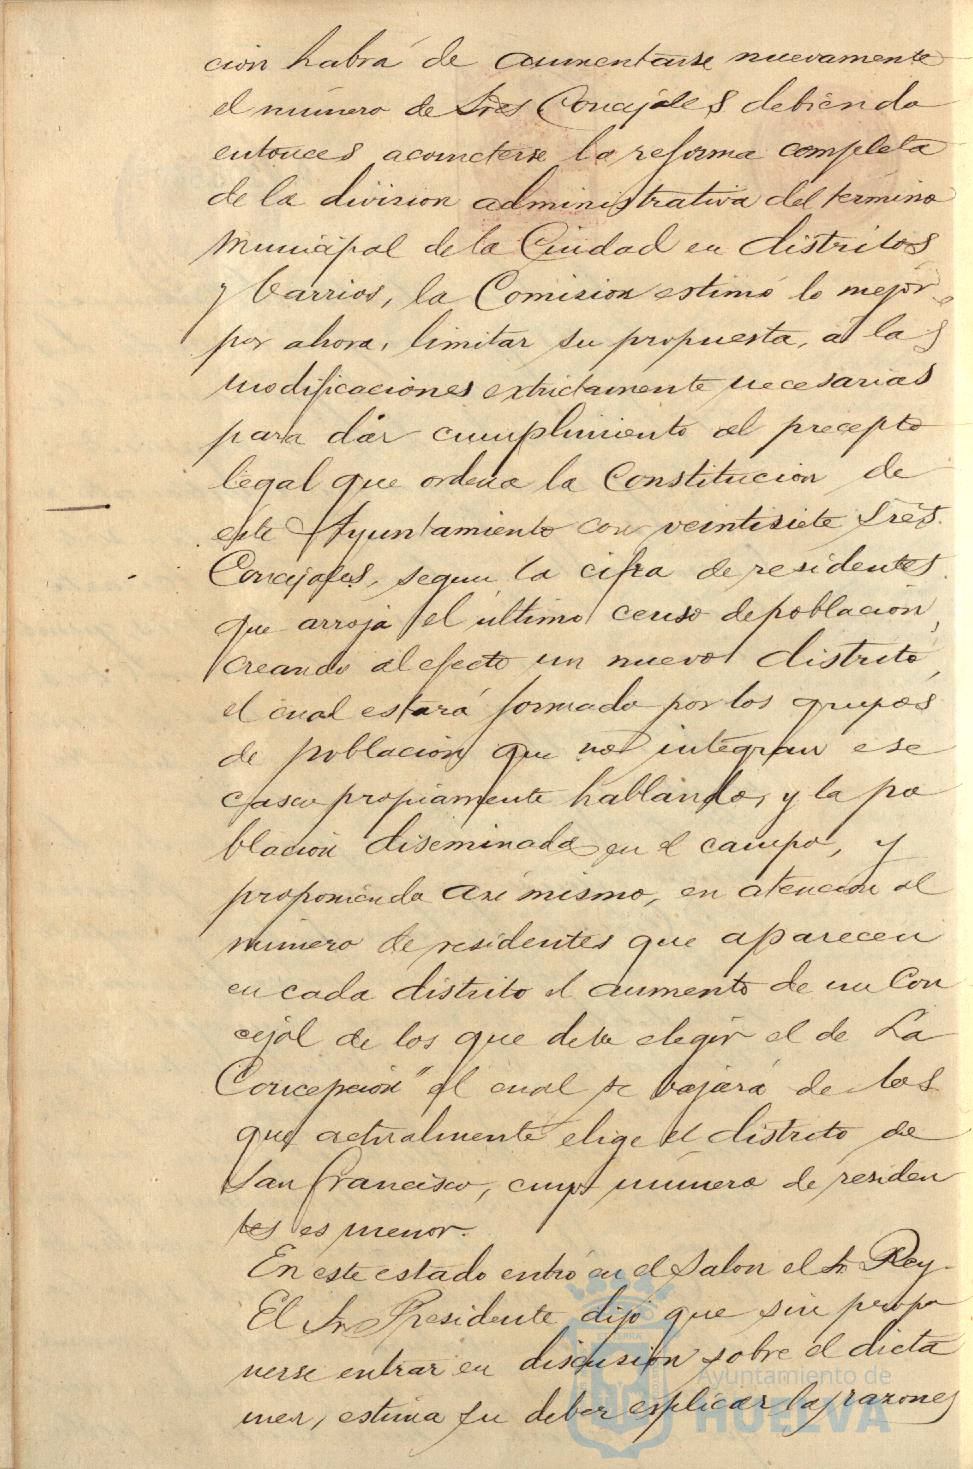 cion habrá de aumentarse nuevamente
el número de Sres Concejales debiendo
entonces acometerse la reforma completa
de la division administrativa del termino
Municipal de la Ciudad en distritos
y barrios, la Comision estimó lo mejor
por ahora, limitar su propuesta, á las
modificaciones extrictamente necesarias
para dár cumplimiento al precepto
legal que ordena la Constitucion de
este Ayuntamiento con veintisiete Sres.
Concejales, segun la cifra de residentes
que arroja el último censo de poblacion,
creando al efecto un nuevo distrito,
el cual estará formado por los grupos
de poblacion que no integran ese
casco propiamente hablando, y la po
blacion diseminada en el campo, y
proponiendo asi mismo, en atencion al
número de residentes que aparecen
en cada distrito el aumento de un Con
cejal de los que debe elegir el de La
Concepcion" el cual se bajará de los
que actualmente elige el distrito de
San Francisco, cuyo número de residen
tes es menor.
En este estado entró en el Salon el Sr Rey.
El Sr Presidente dijo que sin propo
nerse entrar en discusion sobre el dicta
men, estima su deber esplicar las razones
Ayuntamiento de
HUELVA